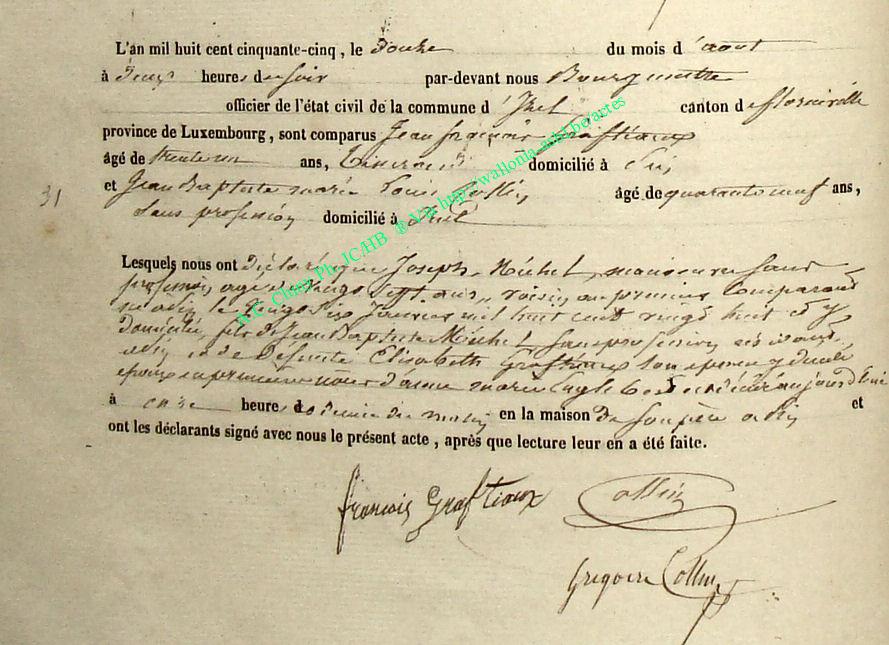 L'an mil huit cent cinquante-cinq, le douze du mois d'aout
à deux heures du soir par-devant nous Bourgmestre
officier de l'état civil de la commune d'Izel canton de florenville
province de Luxembourg, sont comparus Jean françois Graftiaux
âgé de trente un ans, domicilié à
31
et Jean Baptiste marie Louis Collin âgé de quarante neuf ans,
sans profession domicilié à Izel
Lesquels nous ont déclaré que Joseph Michel, sans
profession, agé de vingt sept ans, voisin au premier comparant
le vingt six Janvier mil huit cent vingt huit et y
domicilié, fils de Jean Baptiste Michel sans profession
et de défunte Elisabeth Graftiaux son épouse y
époux en premières noces d'anne marie est décédé aujourd'hui
à onze heures du matin en la maison de son père et
ont les déclarants signé avec nous le présent acte, après que lecture leur en a été faite.
françois Graftiaux Collin
Gregoire Collin
© A.C. Chiny, Ph. JC/HB ® Via http://wallonia-asbl.be/actes